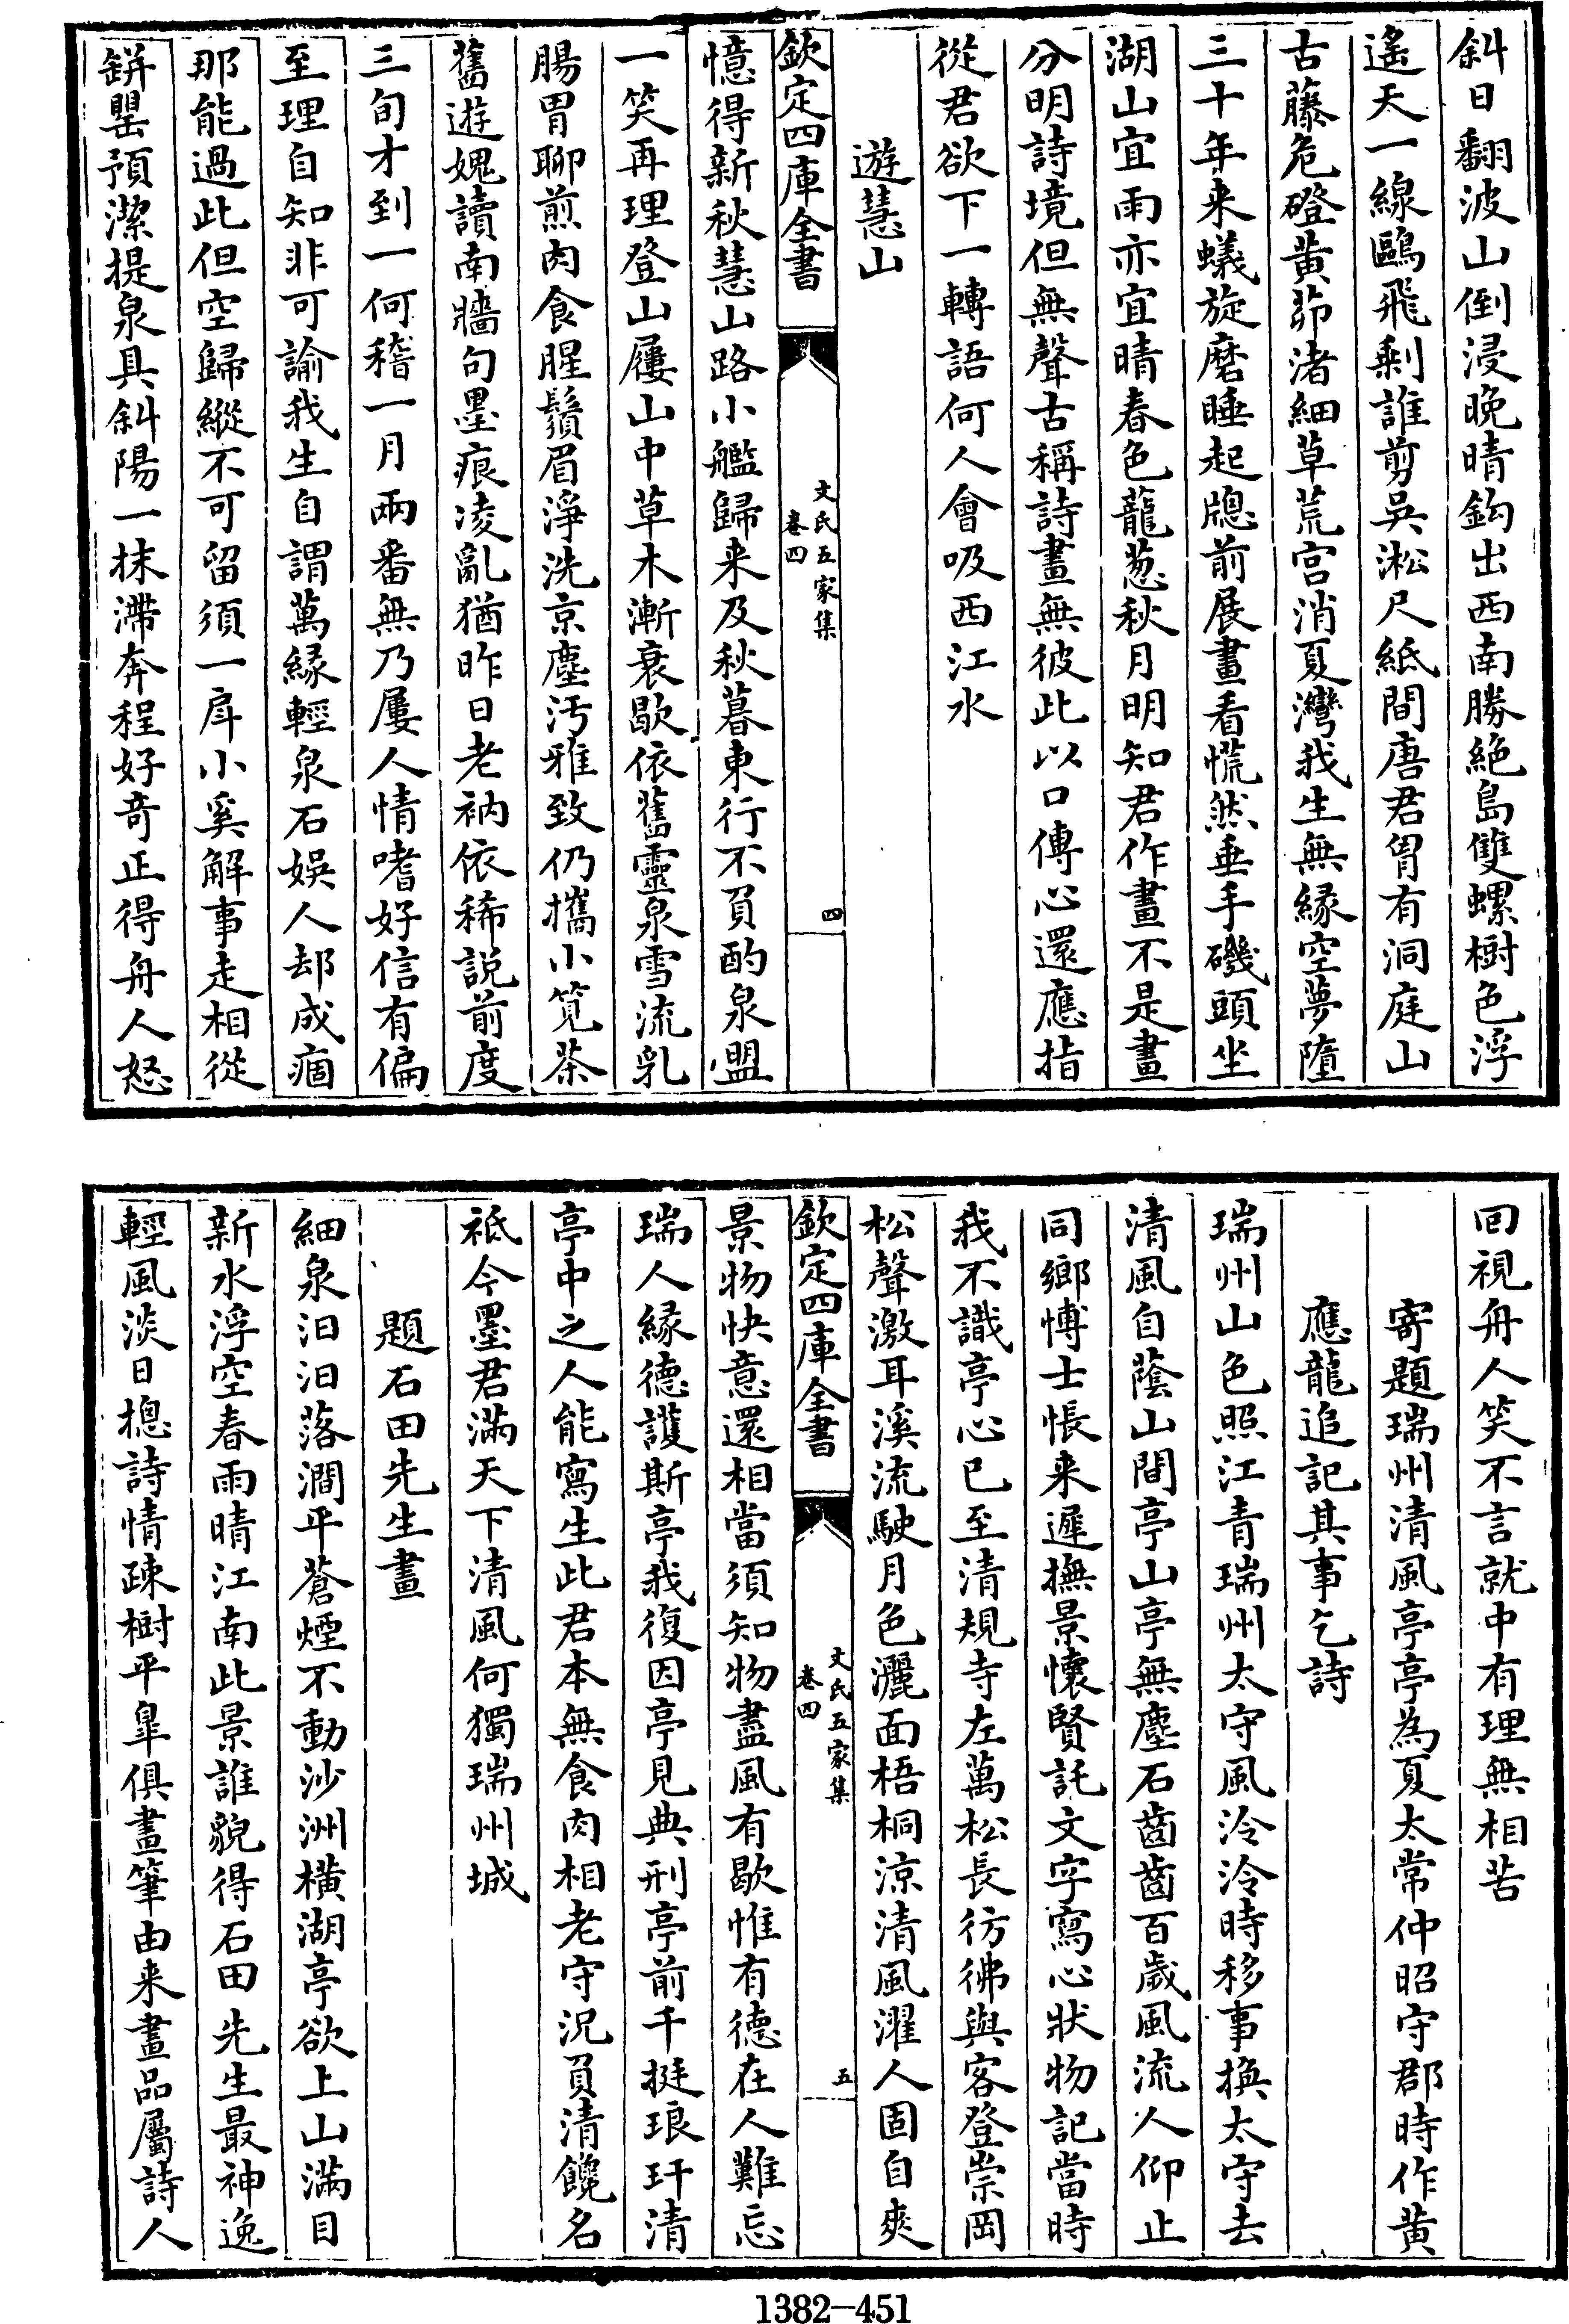 斜日翻波山倒浸晚晴鈎出西南勝絶島雙螺樹色浮
遙天一線鷗飛剰誰剪吳淞尺紙間唐君胷有洞庭山
古藤危磴黄茆渚細草荒宫消夏灣我生無緣空夢墮
三十年来蟻旋磨睡起牕前展畫看慌然垂手磯頭坐
湖山宜雨亦宜晴春色蘢葱秋月明知君作畫不是畫
分明詩境但無聲古稱詩畫無彼此以口傳心還應指
從君欲下一轉語何人會吸西江水
遊慧山
欽定四庫全書
文氏五家集
卷四
四
憶得新秋慧山路小艦歸来及秋暮東行不負酌泉盟
一笑再理登山屨山中草木漸衰歇依舊靈泉雪流乳
腸胃聊煎肉食腥鬚眉淨洗京塵汚雅致仍攜小筧茶
舊遊媿讀南牆句墨痕凌亂猶昨日老衲依稀説前度
三旬才到一何稽一月兩番無乃屢人情嗜好信有偏
至理自知非可諭我生自謂萬緣輕泉石娛人却成痼
那能過此但空歸縱不可留須一戽小奚解事走相從
缾罌預潔提泉具斜陽一抹滯奔程好奇正得舟人怒
回視舟人笑不言就中有理無相苦
寄題瑞州清風亭亭為夏太常仲昭守郡時作黄
應龍追記其事乞詩
瑞州山色照江青瑞州太守風泠泠時移事換太守去
清風自蔭山間亭山亭無塵石齒齒百歲風流人仰止
同鄉博士悵来遲撫景懷賢託文字寫心狀物記當時
我不識亭心已至清規寺左萬松長彷彿與客登崇岡
松聲激耳溪流駛月色灑面梧桐涼清風濯人固自爽
欽定四庫全書
文氏五家集
卷四
五
景物快意還相當須知物盡風有歇惟有德在人難忘
瑞人緣德護斯亭我復因亭見典刑亭前千挺琅玕清
亭中之人能寫生此君本無食肉相老守況負清饞名
祗今墨君滿天下清風何獨瑞州城
題石田先生畫
細泉汩汩落澗平蒼煙不動沙洲橫湖亭欲上山滿目
新水浮空春雨晴江南此景誰貌得石田先生最神逸
輕風淡日摠詩情疎樹平皐俱畫筆由来畫品屬詩人
1382-451